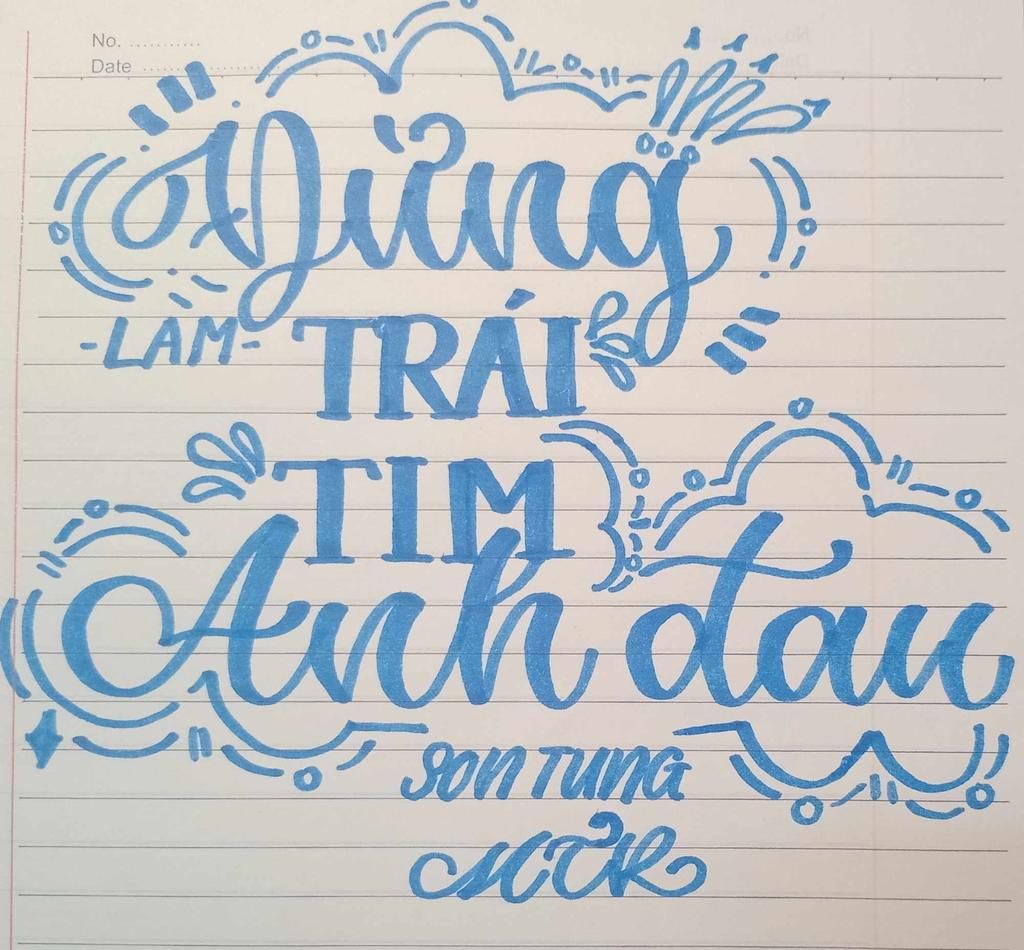 No. ...........
Date ....................
Đừng
-LÀM- TRÁI
TIM
Anh đau
SON TUNG